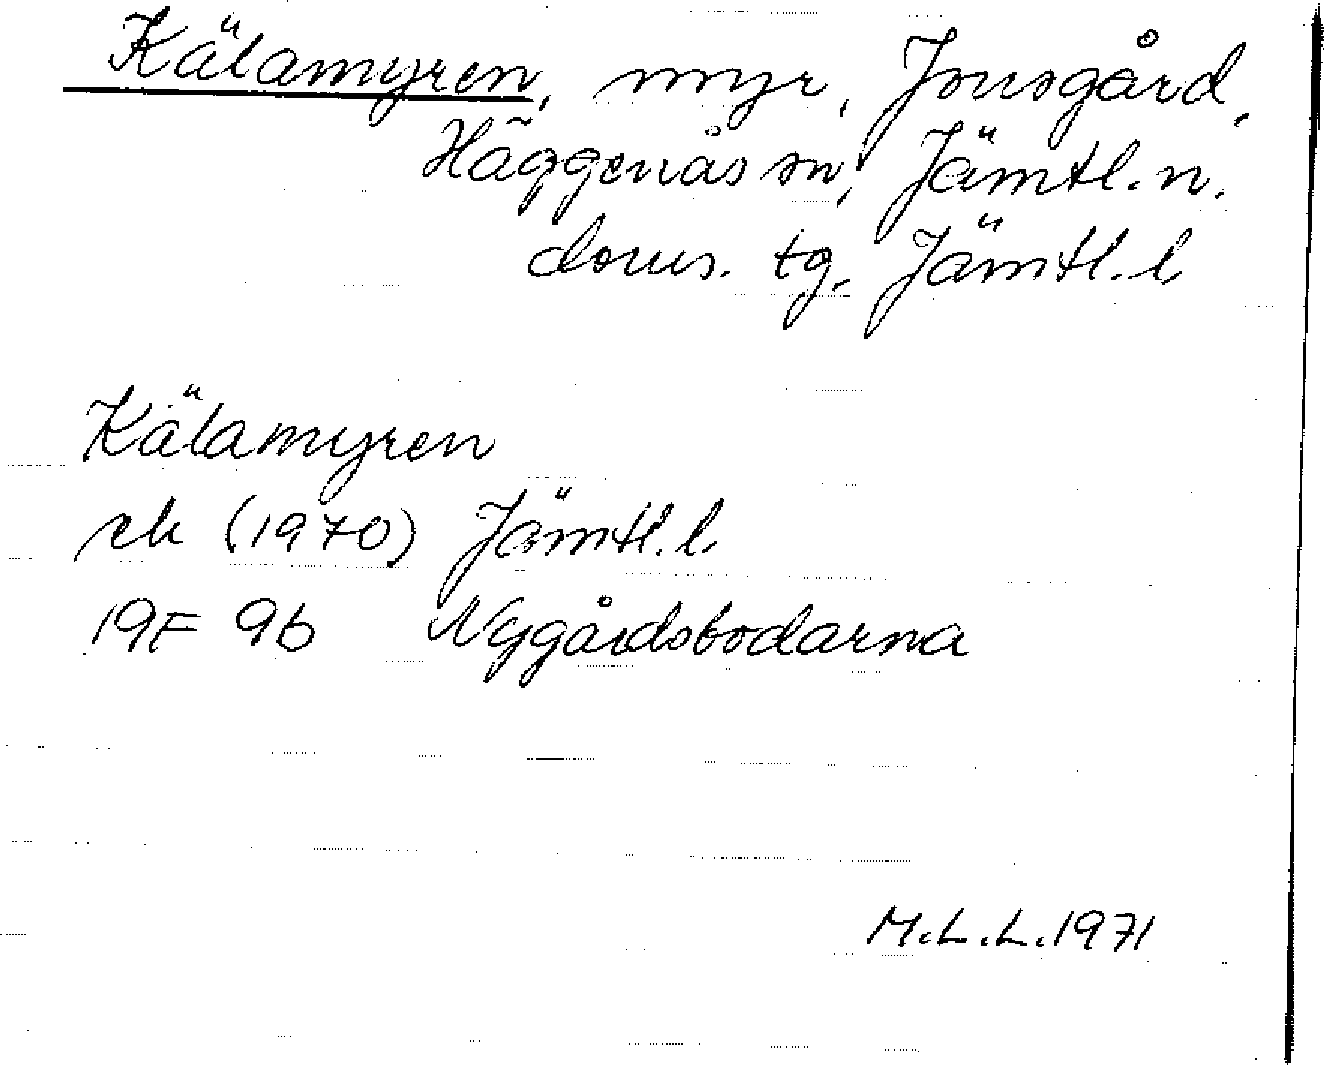 Kälamyren, myr, Jonsgård,
Häggenås sn, Jämtl. n.
doms. tg. Jämtl. l.
Kälamyren
ek (1970) Jämtl. l.
19F 9b Nygårdsbodarna
M.L.L. 1971